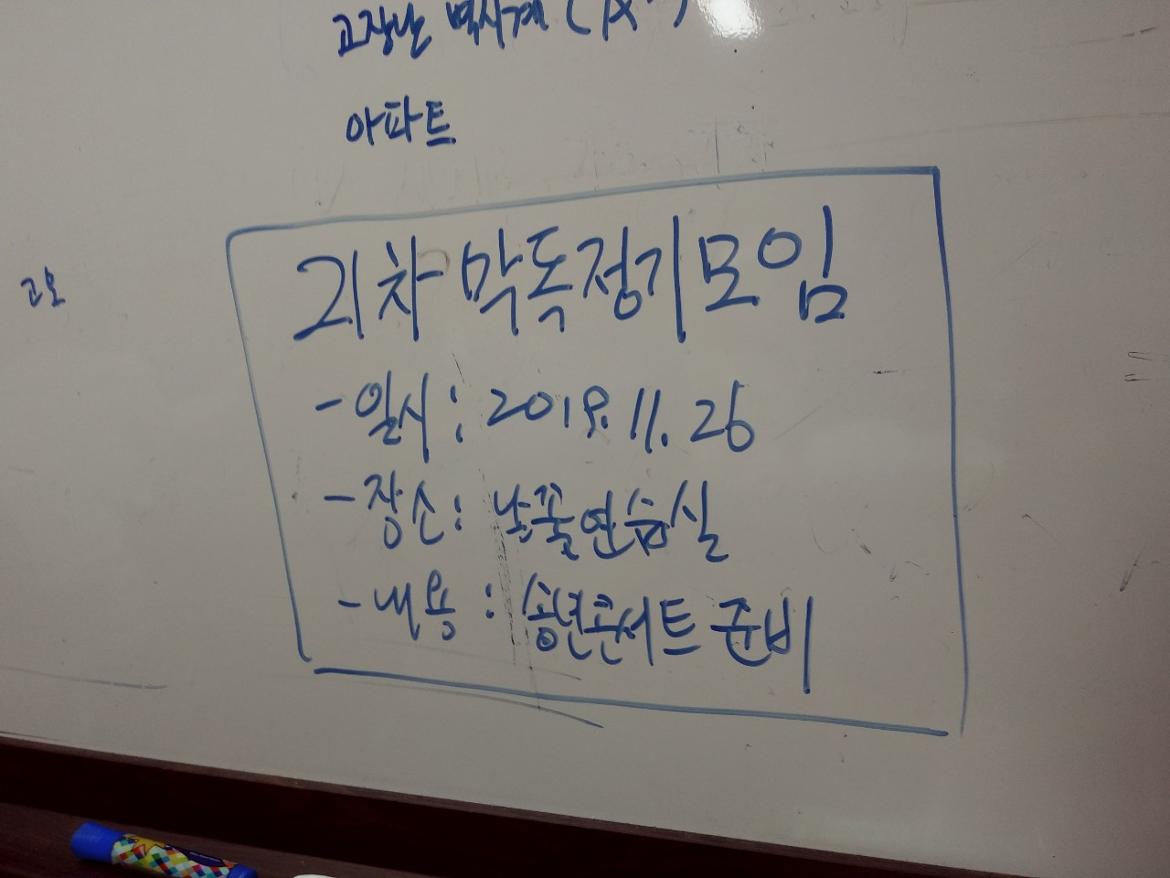 고장난 벽시계
아파트
고오
21차 막독정기모임
- 일시 : 2019. 11. 26
- 장소 : 낮꿈연습실
- 내용 : 송년콘서트 준비